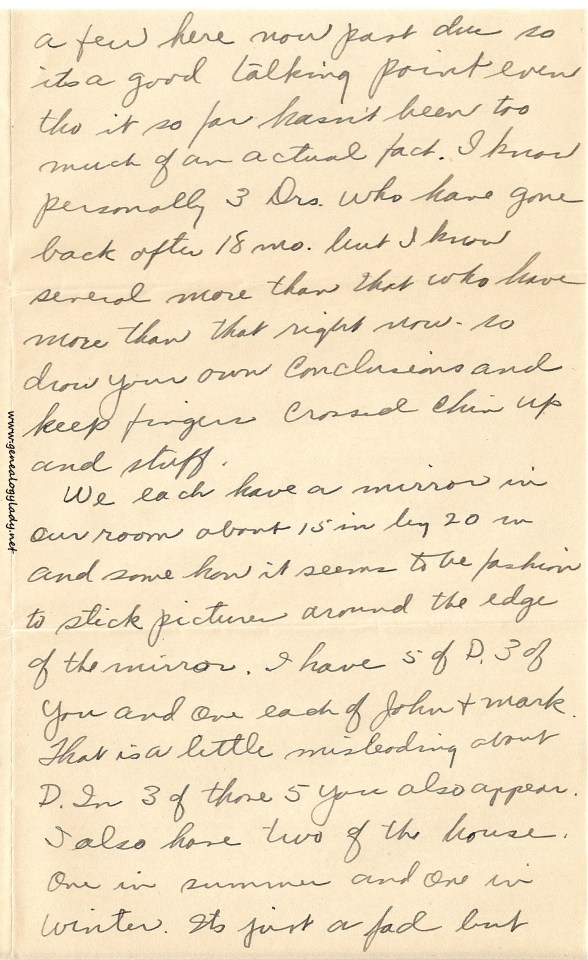 a few here now past due so
its a good talking point even
tho it so far hasn't been too
much of an actual fact. I know
personally 3 Drs. who have gone
back after 18 mo. but I know
several more than that who have
more than that right now - so
draw your own conclusions and
keep fingers crossed chin up
and stuff.
We each have a mirror in
our room about 15 in by 20 in
and some how it seems to be fashion
to stick pictures around the edge
of the mirror. I have 5 of D. 3 of
you and one each of John + Mark.
That is a little misleading about
D. In 3 of those 5 you also appear.
I also have two of the house.
One in summer and one in
winter. Its just a fad but
www.genealogylady.net